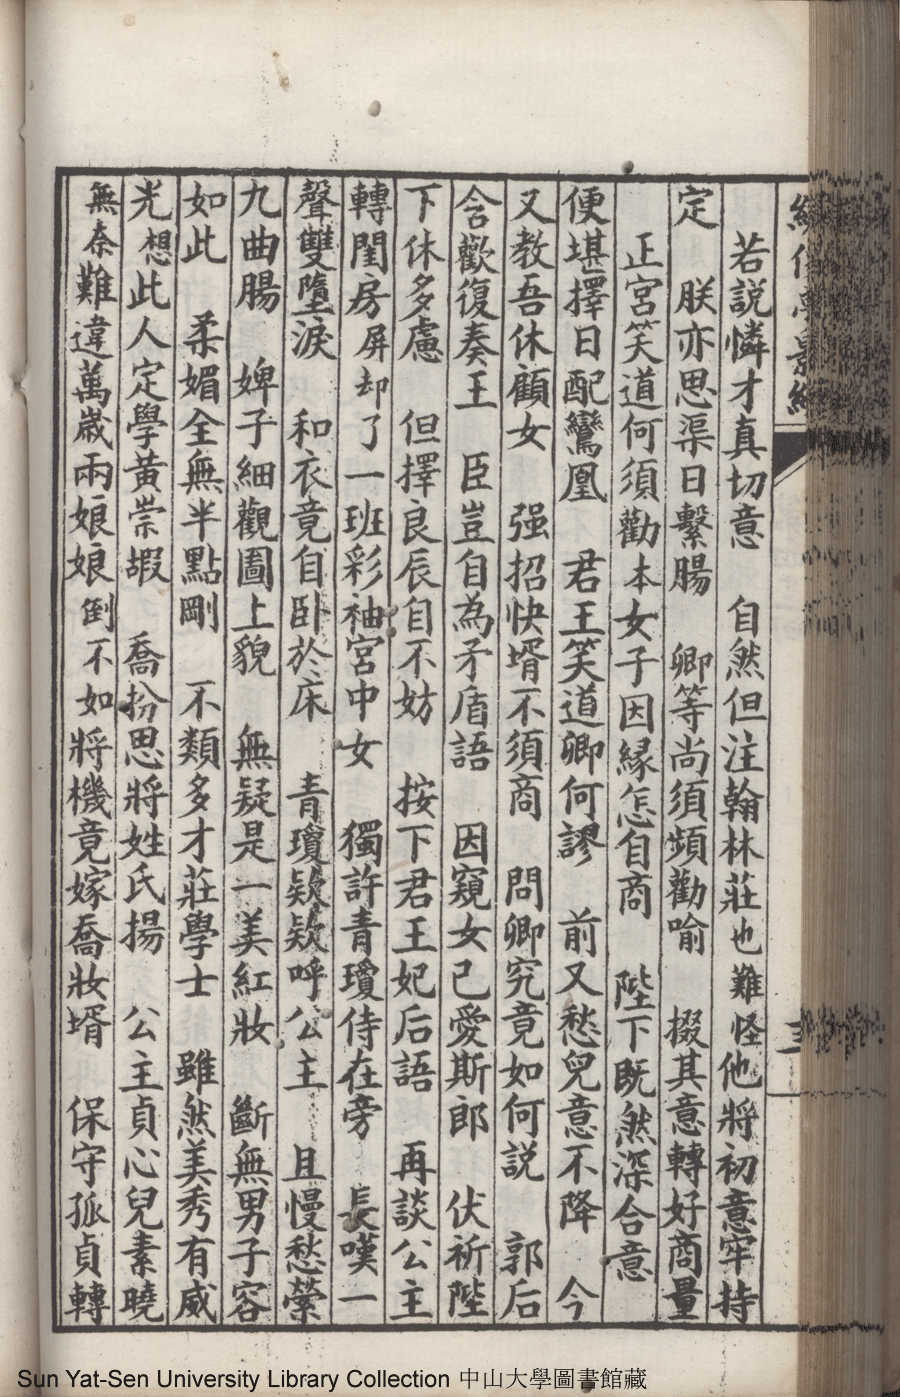 若說憐才真切意　自然但注翰林莊也難怪他將初意牢持
定　朕亦思渠日繫腸　卿等尚須頻勸喻　掇其意轉好商量
正宮笑道何須勸本女子因緣怎自商　陛下既然深合意
便堪擇日配鸞凰　君王笑道卿何謬　前又愁兒意不降　今
又教吾休顧女　强招快壻不須商　問卿究竟如何説　郭后
含歡復奏王　臣豈自為矛盾語　因窺女已愛斯郎　伏祈陛
下休多慮　但擇良辰自不妨　按下君王妃后語　再談公主
轉閨房屏却了一班彩袖宮中女　獨許青瓊侍在旁　長嘆一
聲雙墮淚　和衣竟自卧於床　青瓊欵欵呼公主　且慢愁縈
九曲腸　婢子細觀圖上貌　無疑是一美紅妝　斷無男子容
如此　柔媚全無半點剛　不類多才莊學士　雖然美秀有威
光想此人定學黄崇嘏　喬扮思將姓氏揚　公主貞心兒素曉
無奈難違萬歲兩娘娘倒不如將機竟嫁喬妝壻　保守孤貞轉
Sun Yat-Sen University Library Collection 中山大學圖書館藏